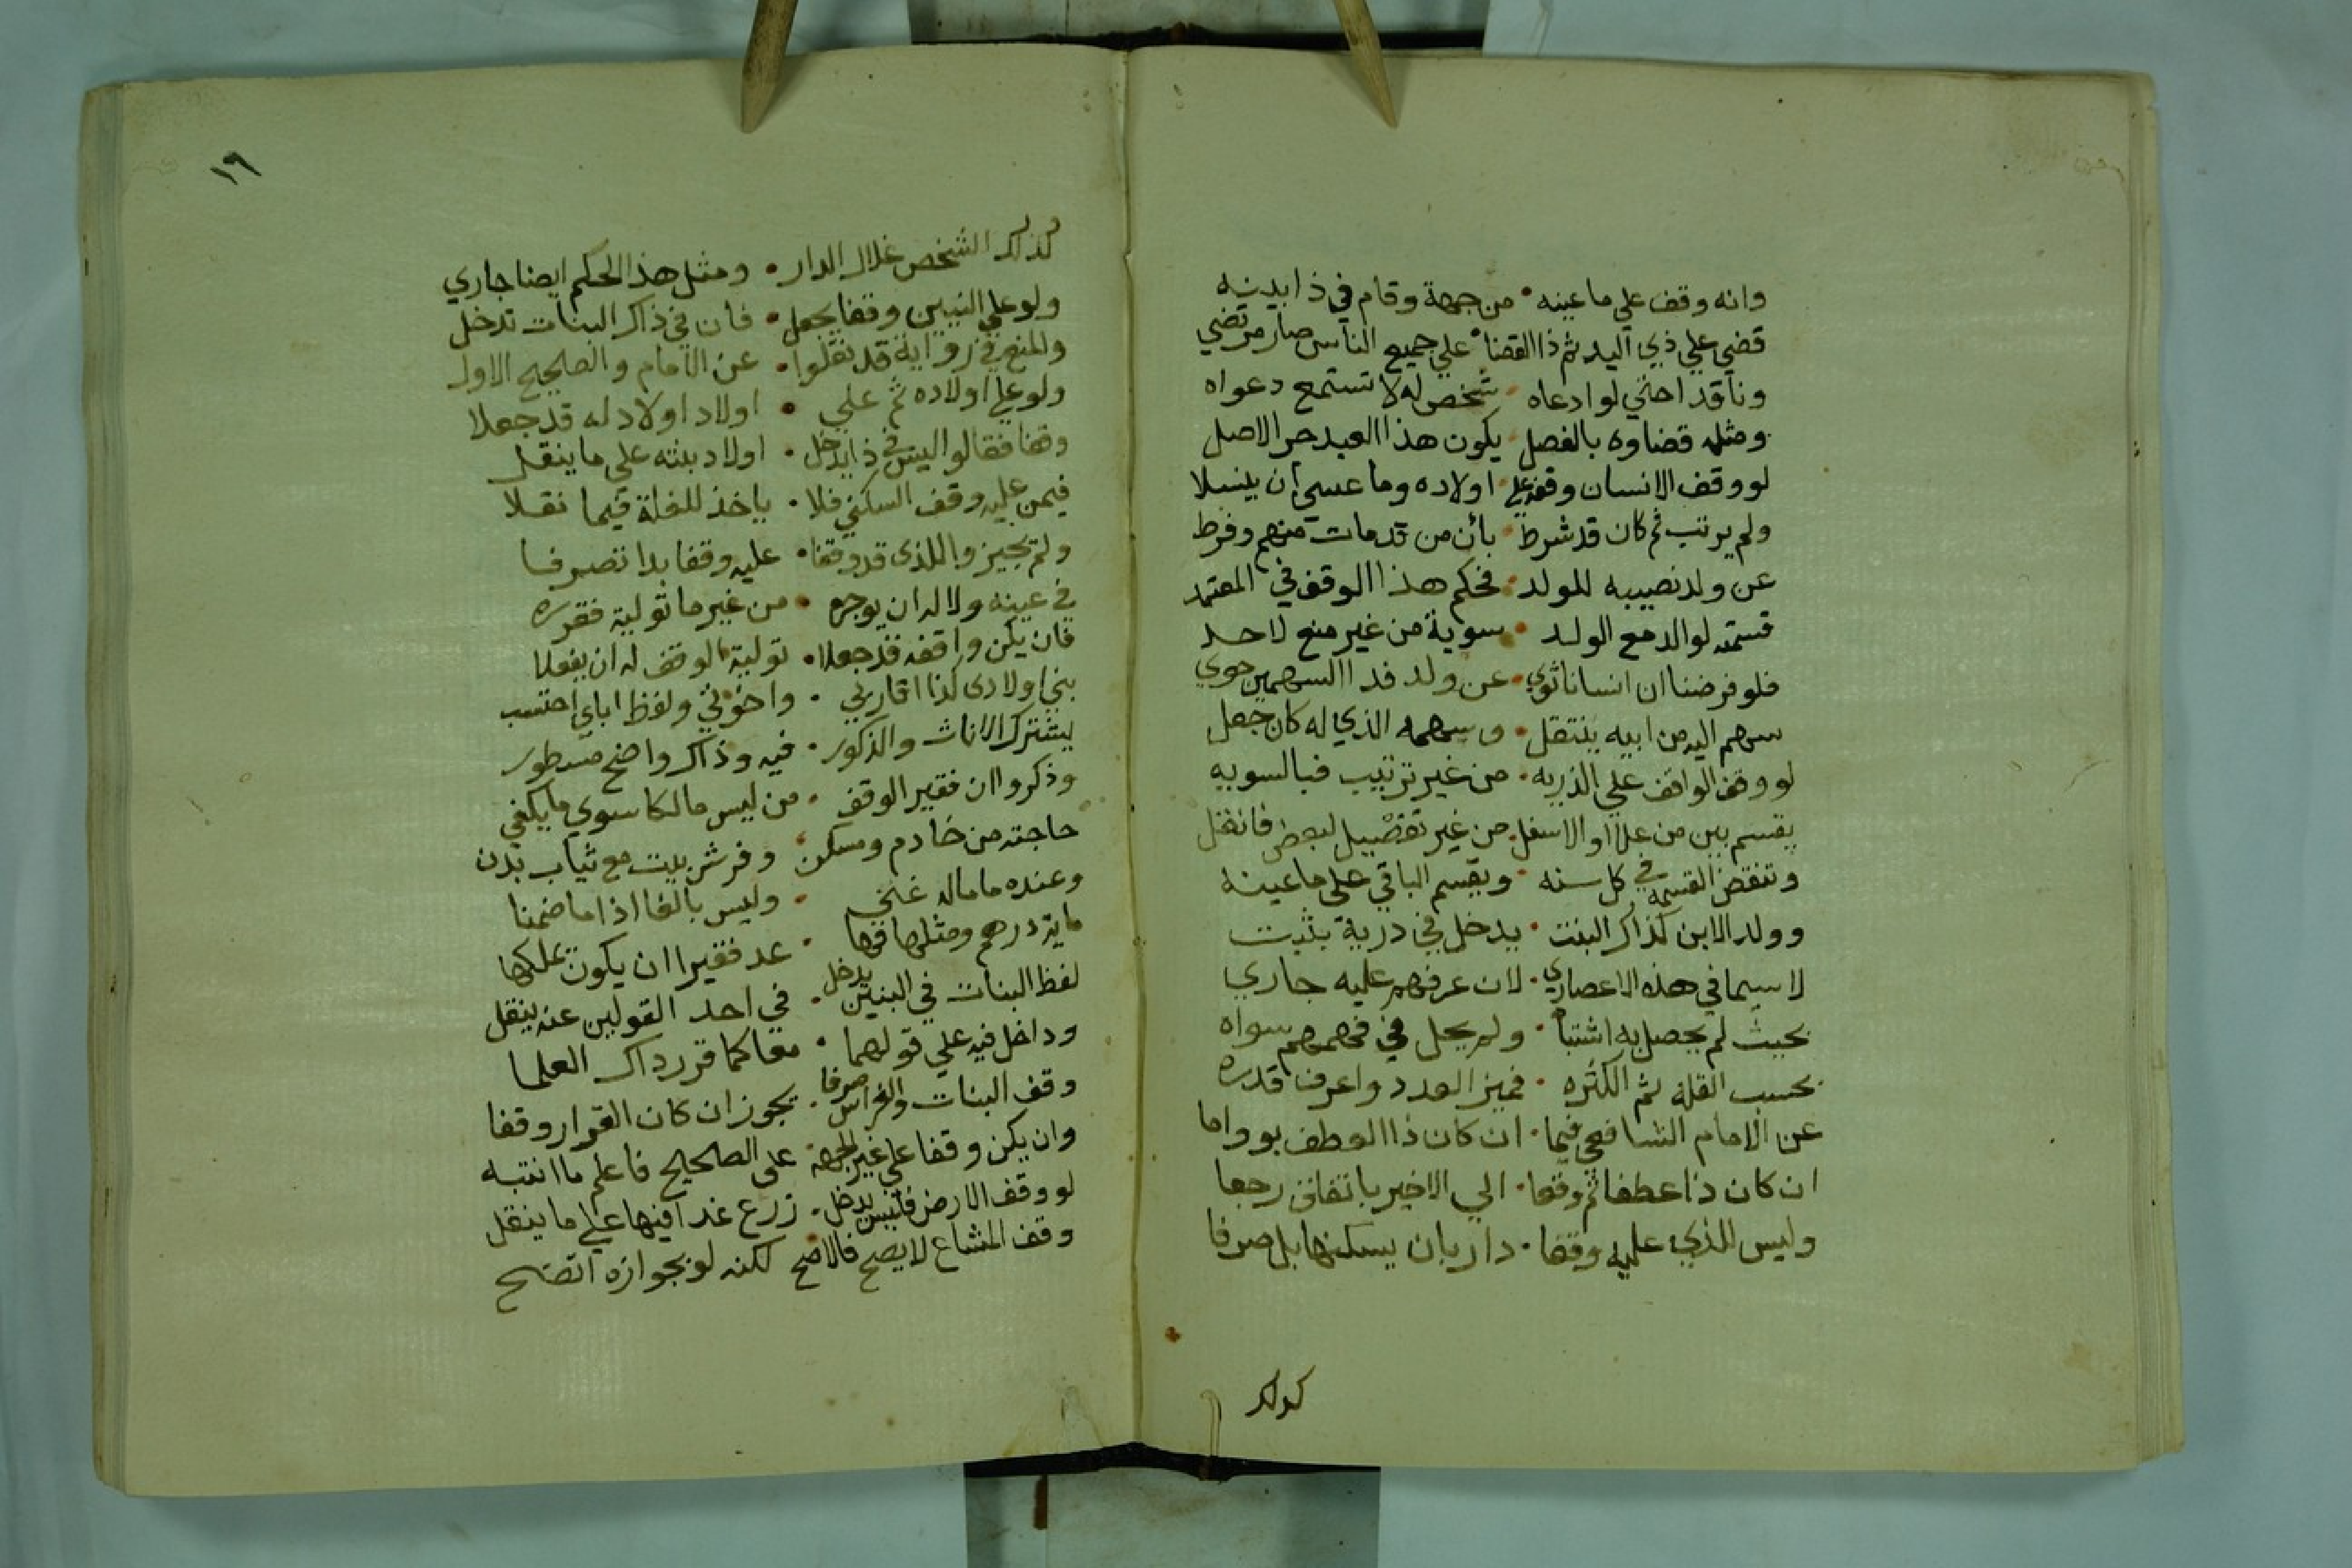 وانه وقف علي ما عينه • من جهة وقام في ذا بينه
قضي علي ذي اليد ثم ذا القضا • علي جميع الناس صار مرتضي
شخص له لا تستمع دعواه
ومثله قضاوه بالفصل • يكون هذا العبد حر الاصل
لو وقف الانسان وقفه علي • اولاده وما عسي ان ينسلا
ولم يرتب ثم كان قد شرط • بأن من قد مات منهم وفرط
عن ولد نصيبه للولد • فحكم هذا الوقف في المعتمد
قسمته لوالد مع الولد • سوية من غير منع لاحد
فلو فرضنا ان انسانا ثوي • عن ولد فذا السهمين حوي
سهم اليه من ابيه ينتقل • وسهمه الذي له كان جعل
لو وقف الواقف علي الذريه • من غير ترتيب فبالسويه
يقسم بين من علا او الاسفل • من غير تفضيل لبعض فانقل
وتنقض القسمه في كل سنه • ويقسم الباقي على ما عينه
وولد الابن كذاك البنت • يدخل في درية بثبت
لا سيما في هذه الاعصاري • لان عرفهم عليه جاري
بحيث لم يحصل به اشتباه • ولم يحل في فهمهم سواه
بحسب القلة ثم الكثره • فميز العدد واعرف قدره
عن الامام الشافعي فيما • ان كان ذا العطف بواو اما
ان كان ذا عطفا ثم وقعا • الي الاخير باتفاق رجعا
وليس للذي عليه وقفا • دار بان يسكنها بل صرفا
كذلك
١٩
كذلك الشخص غلال الدار • ومثل هذا الحكم ايضا جاري
ولو علي البنين وقفا يجعل • فان في ذاك البنات تدخل
والمنع في رواية قد نقلوا • عن الامام والصحيح الاول
ولو علي اولاده ثم علي • اولاد اولاد له قد جعلا
وقفا فقالوا ليس في ذا يدخل • اولاد بنته على ما ينقل
فيمن عليه وقف السكني فلا • ياخذ للغلة فيما نقلا
ولم يجيزوا للذي قد وقفا • عليه وقفا بدا تصرفا
في عينه ولا له ان يوجره • من غير ما تولية فقرره
فان يكن واقفه قد جعلا • تولية الوقف له ان يفعلا
بني اولادي كذا اقاربي • واخوتي ولفظ اباي احتسب
يشترك الاناث والذكور • فيه وذاك واضح مسطور
وذكروا ان فقير الوقف • من ليس مالكا سوي ما يكفي
حاجته من خادم ومسكن • وفرش بيت مع ثياب بدن
وعنده ما ماله غني • وليس بالغا اذا ما ضمنا
ماية درهم ومثلها فها • عد فقيرا ان يكون ملكها
لفظ البنات في البنين يدخل • في احد القولين عنه ينقل
وداخل فيه علي قولهما • معا كما قرر ذاك العلما
وقف البنات والغراس صرفا • يجوز ان كان القرار وقفا
وان يكن وقفا علي غير الجهه • على الصحيح فاعلم ما انتبه
لو وقف الارض فليس يدخل • زرع غدا فيها علي ما ينقل
وقف المشاع لا يصح فالاصح • لكنه لو بجوازه اتضح